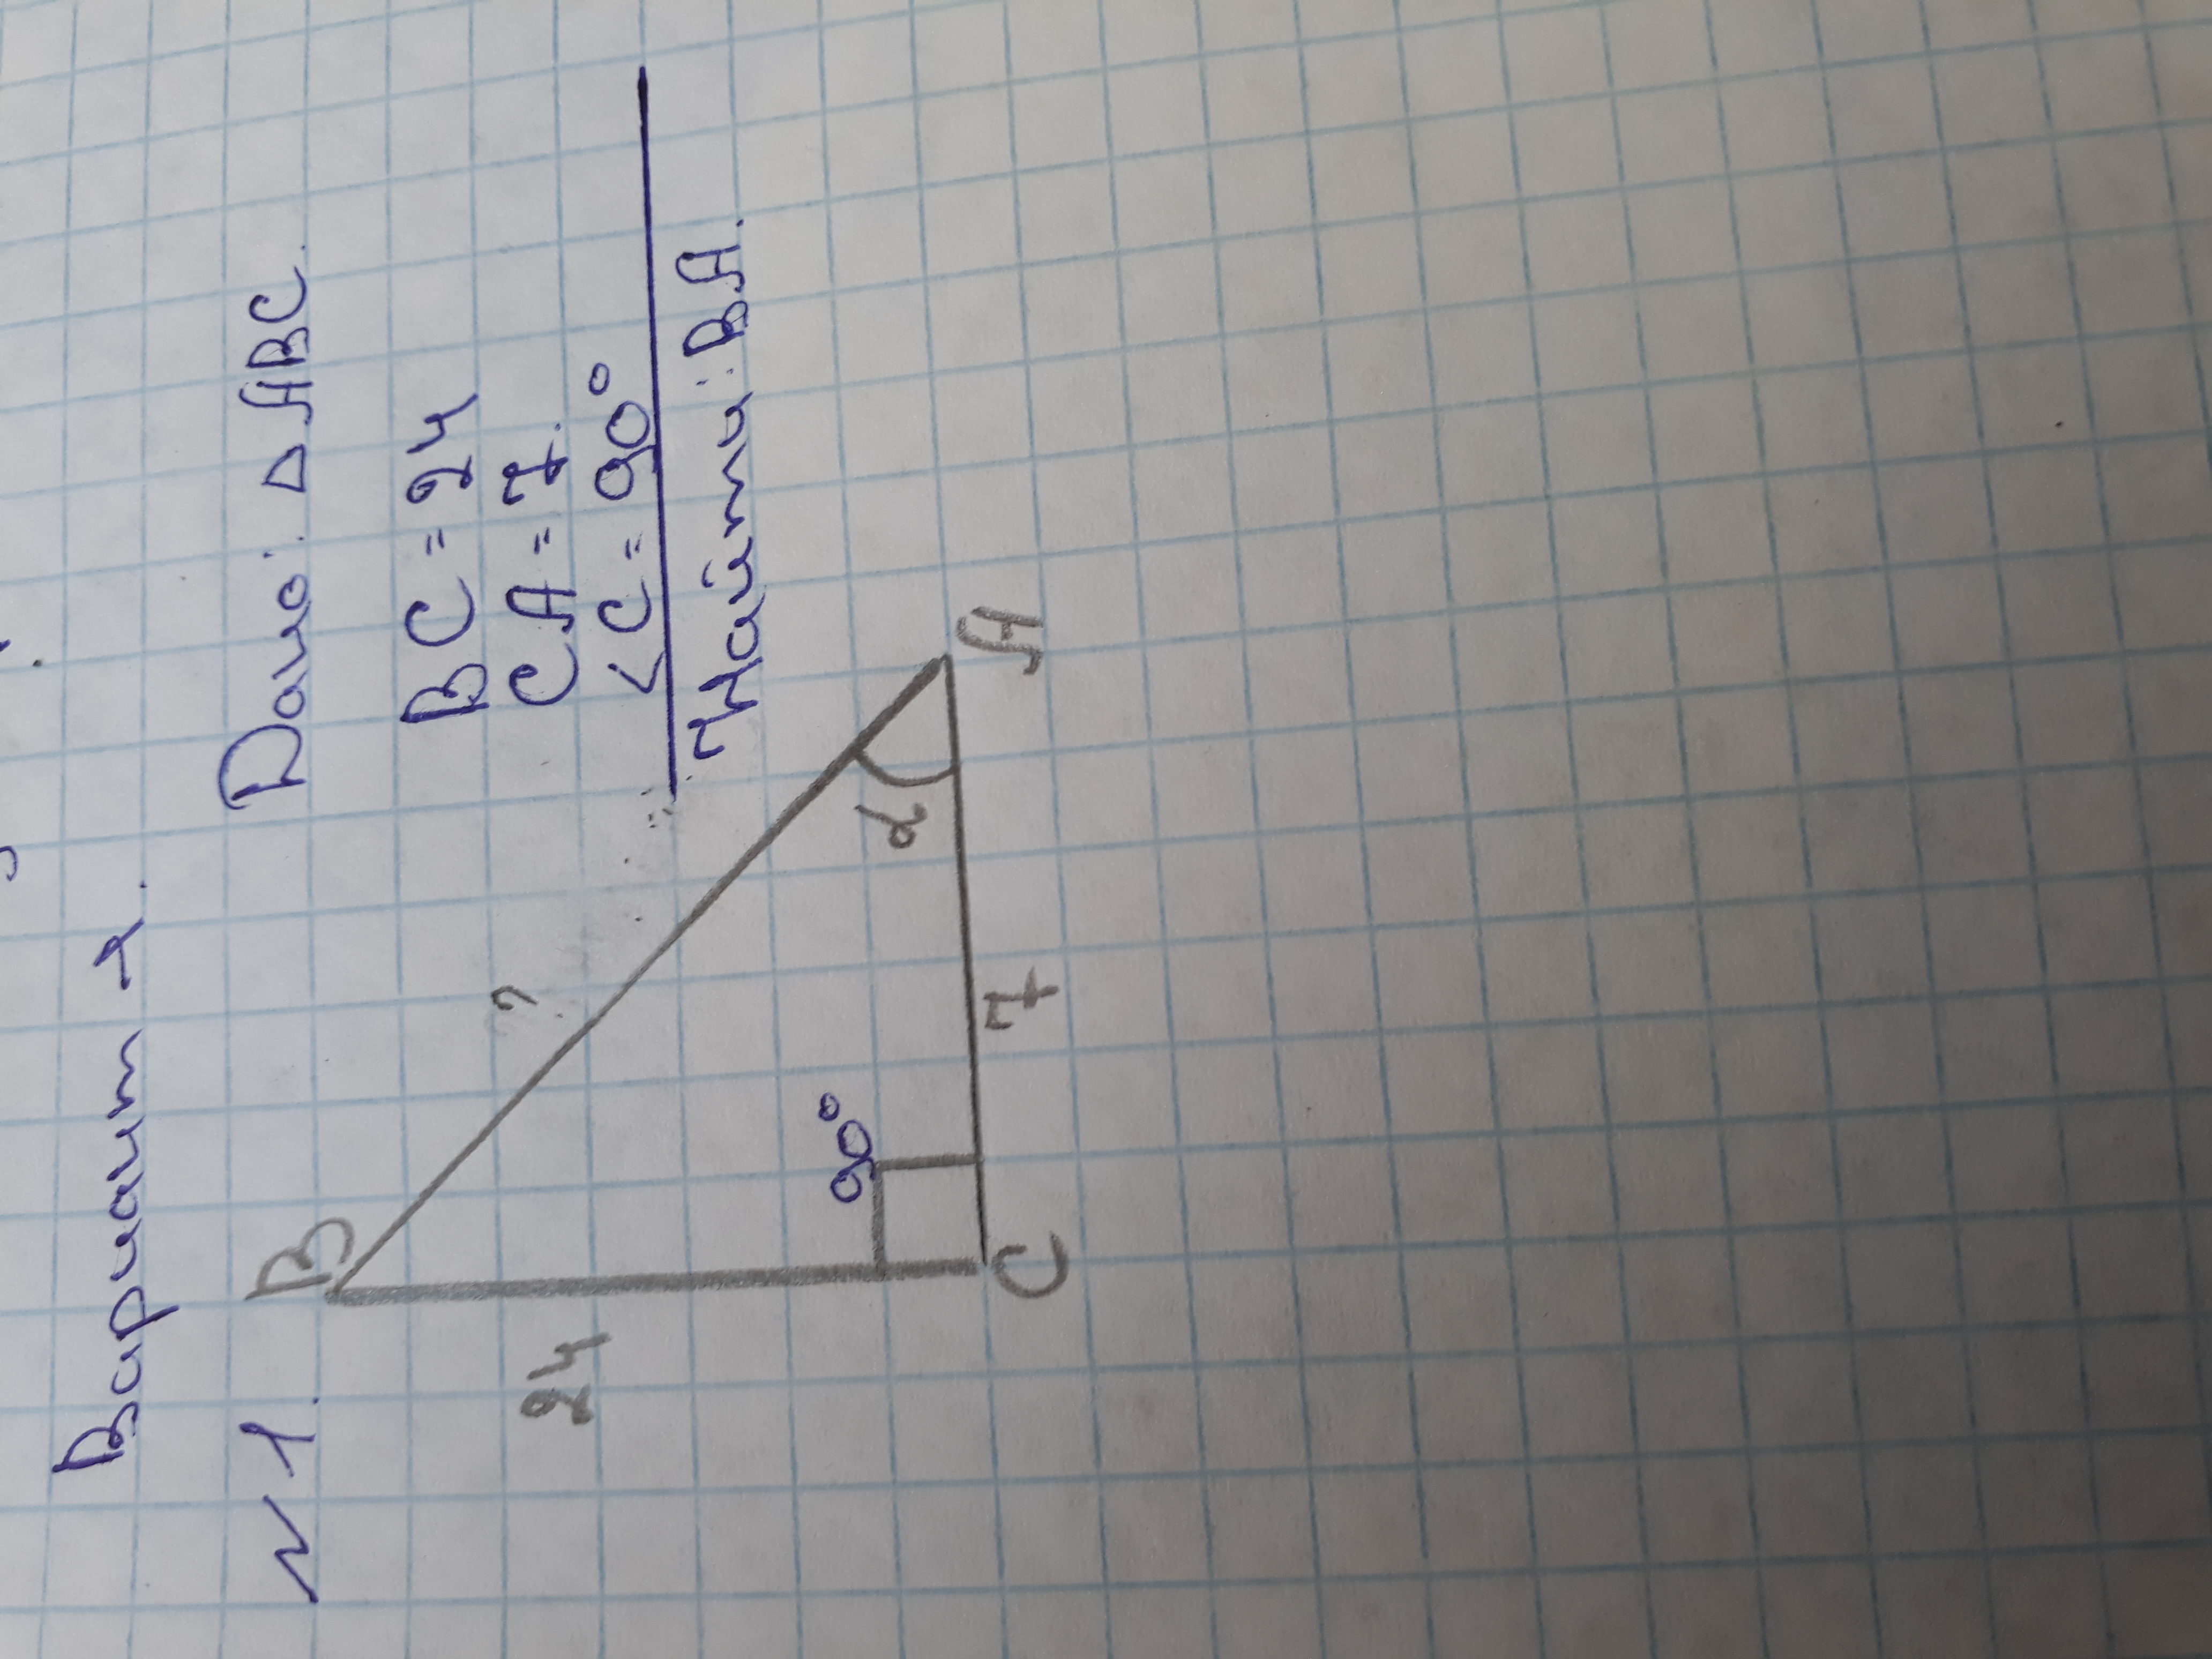 Вариант 2.
№ 1.
Дано: △ ABC.
BC = 24
CA = 7.
<C = 90°
Найти: BA.
B
?
24
90°
α
C
7
A